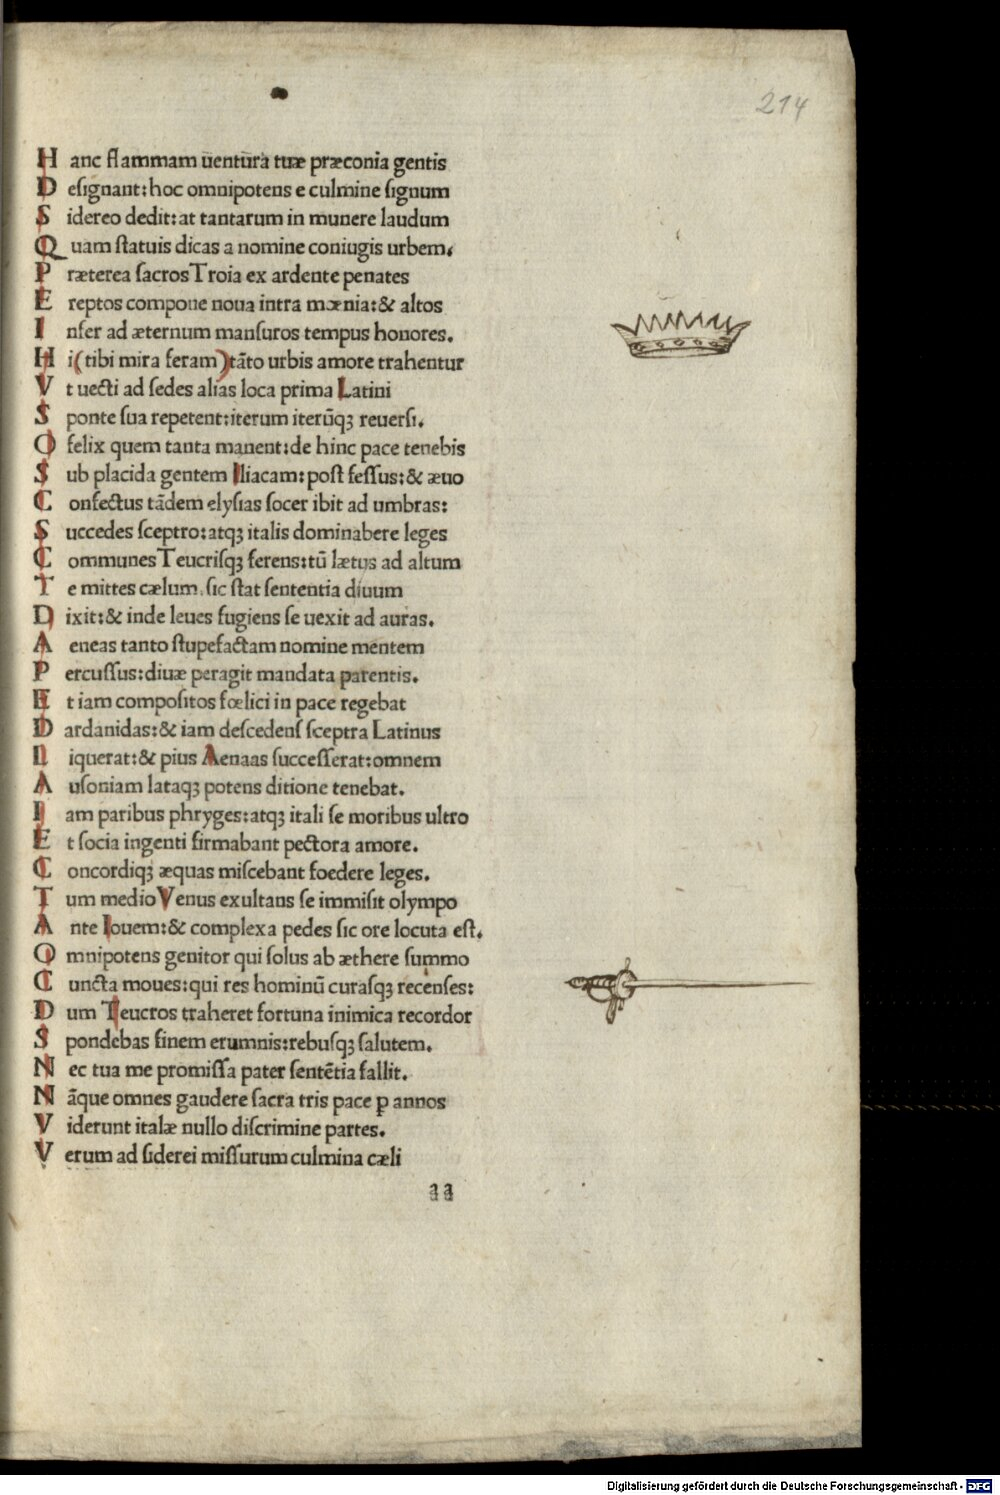 214
H anc flammam uentura tuæ præconia gentis
D eſignant:hoc omnipotens e culmine ſignum
S idereo dedit:at tantarum in munere laudum
Q uam ſtatuis dicas a nomine coniugis urbem.
P ræterea ſacros Troia ex ardente penates
E reptos compone noua intra mœnia:& altos
I nfer ad æternum manſuros tempus honores.
H i(tibi mira feram)tāto urbis amore trahentur
V t uecti ad ſedes alias loca prima Latini
S ponte ſua repetent:iterum iterūqꝫ reuerſi.
O felix quem tanta manent:de hinc pace tenebis
S ub placida gentem Iliacam:poſt feſſus:& æuo
C onfectus tādem elyſias ſocer ibit ad umbras:
S uccedes ſceptro:atqꝫ italis dominabere leges
C ommunes Teucriſqꝫ ferens:tū lætus ad altum
T e mittes cælum.ſic ſtat ſententia diuum
D ixit:& inde leues fugiens ſe uexit ad auras.
A eneas tanto ſtupefactam nomine mentem
P ercuſſus:diuæ peragit mandata parentis.
E t iam compoſitos fœlici in pace regebat
D ardanidas:& iam deſcedenſ ſceptra Latinus
L iquerat:& pius Aenaas ſucceſſerat:omnem
A uſoniam lataqꝫ potens ditione tenebat.
I am paribus phryges:atqꝫ itali ſe moribus ultro
E t ſocia ingenti firmabant pectora amore.
C oncordiqꝫ æquas miſcebant foedere leges.
T um medio Venus exultans ſe immiſit olympo
A nte Iouem:& complexa pedes ſic ore locuta eſt.
O mnipotens genitor qui ſolus ab æthere ſummo
C uncta moues:qui res hominū curaſqꝫ recenſes:
D um Teucros traheret fortuna inimica recordor
S pondebas finem erumnis:rebuſqꝫ ſalutem.
N ec tua me promiſſa pater ſentētia fallit.
N āque omnes gaudere ſacra tris pace ꝑ annos
V iderunt italæ nullo diſcrimine partes.
V erum ad ſiderei miſſurum culmina cæli
Digitalisierung gefördert durch die Deutsche Forschungsgemeinschaft - DFG